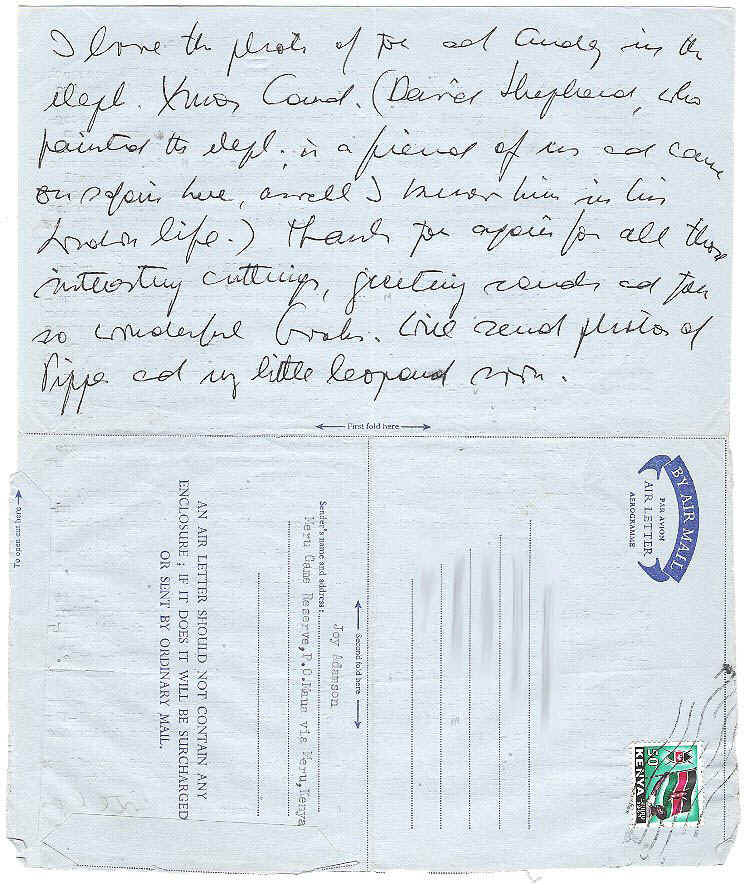 I love the photo of you ad Andy in the
eleph. Xmas Card. (David Shepherd, who
painted the eleph. is a friend of us ad came
on safari here, as well I know him in his
London life.) Thank you again for all those
interesting cuttings, greeting cards ad you
so wonderful books. Will send photos of
Pippa ad my little leopard soon.
First fold here
To open cut here
AN AIR LETTER SHOULD NOT CONTAIN ANY
ENCLOSURE ; IF IT DOES IT WILL BE SURCHARGED
OR SENT BY ORDINARY MAIL.
Sender's name and address :
Joy Adamson
Meru Game Reserve,P.O.Maua via Meru,Kenya
Second fold here
BY AIR MAIL
PAR AVION
AIR LETTER
AEROGRAMME
50
KENYA